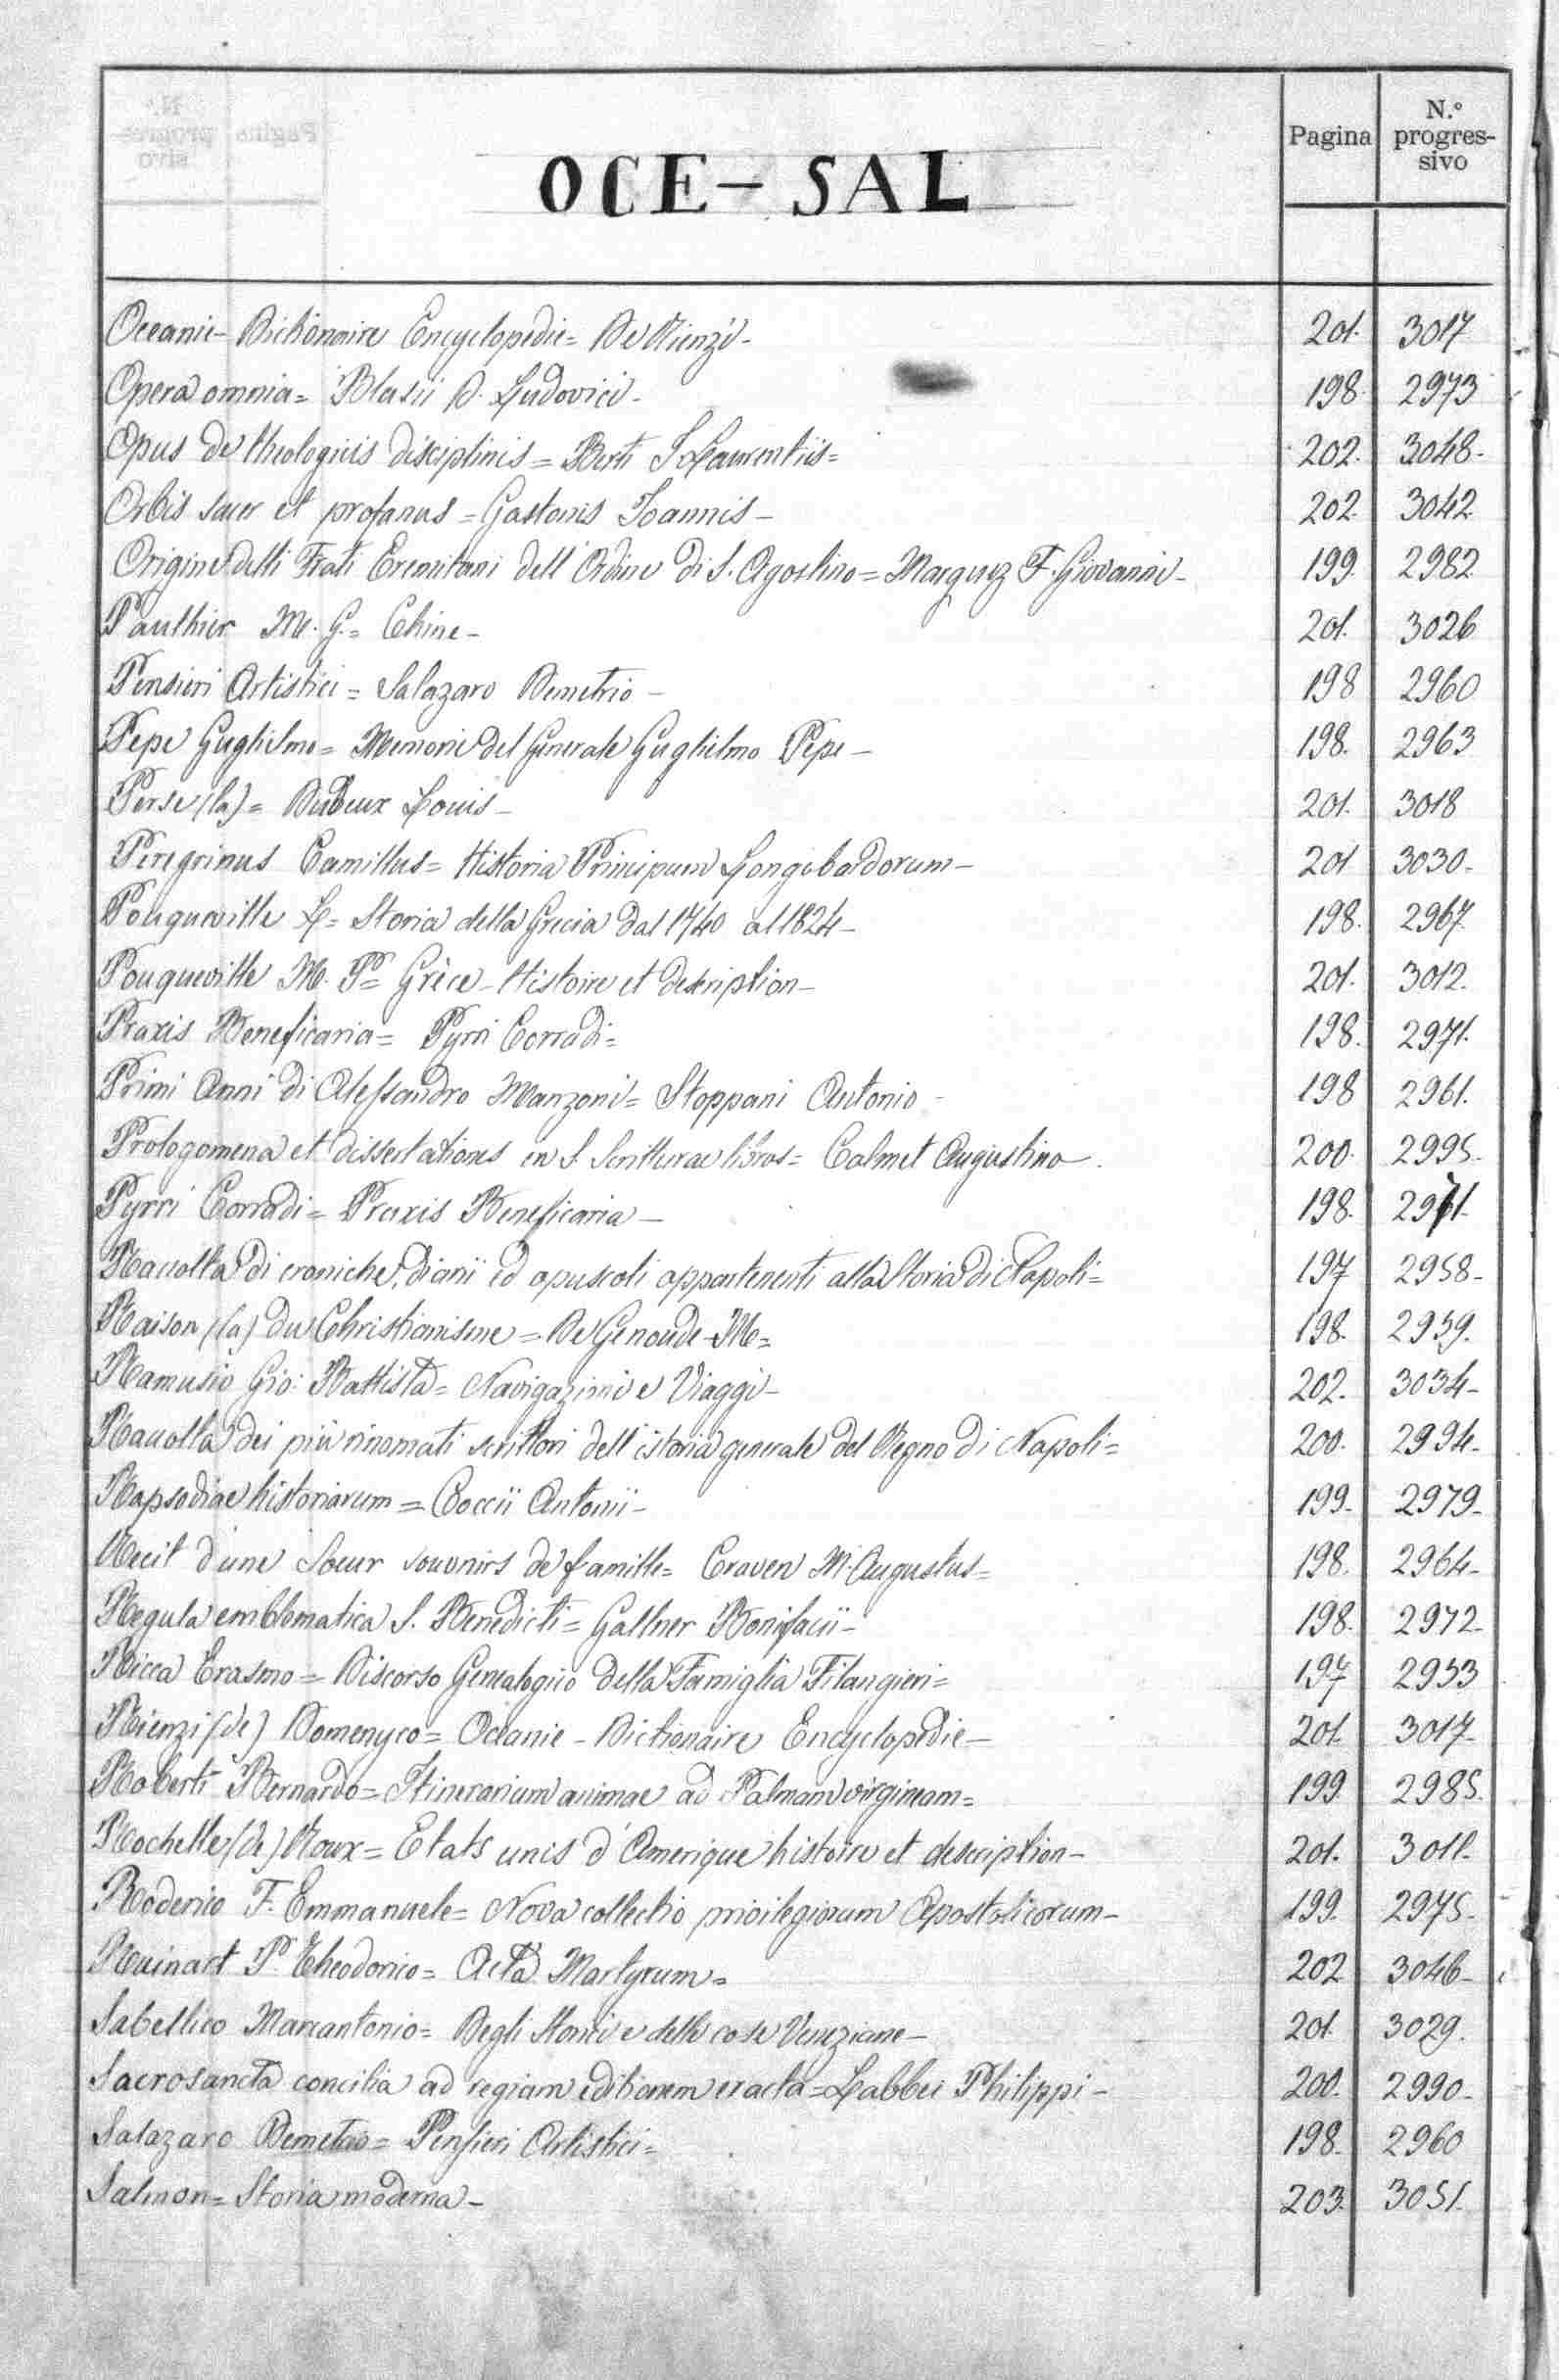 Pagina
N.° progressivo
OCE - SAL
Oceanie - Dictionaire Encyclopedie = De Rienzi - 201. 3017
Opera omnia = Blasii D. Ludovici - 198 2973
Opus de theologicis disciplinis = Berti J. Laurentiis = 202. 3048-
Orbis sacer et profanus = Gastonis Joannis - 202. 3042
Origine delli Frati Eremitani dell'Ordine di S. Agostino = Marquez F. Giovanni - 199. 2982
Pauthier M. G. = Chine - 201. 3026
Pensieri Artistici = Salazaro Demetrio - 198 2960
Pepe Guglielmo = Memorie del Generale Guglielmo Pepe - 198. 2963
Perse (la) = Dubeux Louis - 201. 3018
Peregrinus Camillus = Historia Principum Longobardorum - 201 3030-
Pouqueville L = Storia della Grecia dal 1740 al 1824 - 198. 2967
Pouqueville M. P = Grèce - Histoire et description - 201. 3012.
Praxis Beneficaria = Pyrri Corradi = 198. 2971.
Primi Anni di Alessandro Manzoni = Stoppani Antonio - 198 2961.
Prologomena et dissertationes en S. Scritturae libros = Calmet Augustino - 200. 2995.
Pyrri Corradi = Praxis Beneficaria - 198. 2971.
Raccolta di croniche, diarii ed opuscoli appartenenti alla Storia di Napoli = 197 2958-
Raison (la) du Christianisme = De Genoude - M = 198. 2959.
Ramusio Gio: Battista = Navigazioni e Viaggi - 202. 3034-
Raccolta dei più rinomati scrittori dell'istoria generale del Regno di Napoli = 200. 2994-
Rapsodiae historiarum = Coccii Antonii - 199. 2979-
Recit d'une Soeur souvnirs de famille = Craven M. Augustus = 198. 2964-
Regula emblematica S. Benedicti = Gallner Bonifacii - 198. 2972-
Ricca Erasmo = Discorso Genealogico della Famiglia Filangieri = 197 2953
Rienzi (de) Domenyco = Océanie - Dictionaire Encyclopédie - 201. 3017-
Roberti Bernardo = Itinerarium animae ad Palmam virgineam = 199 2985.
Rochelle (de) Roux = Etats unis d'Amerique histoire et description - 201. 3011.
Roderico F. Emmanuele = Nova collectio privilegiorum Apostolicorum - 199. 2975.
Ruinart P. Theodorico = Acta Martyrum = 202 3046-
Sabellico Marcantonio = Degli Storici e delle cose Veneziane - 201. 3029.
Sacrosancta concilia ad regiam editionem exacta = Labbei Philippi - 200. 2990-
Salazaro Demetrio = Pensieri Artistici = 198. 2960
Salmon = Storia moderna - 203. 3051.